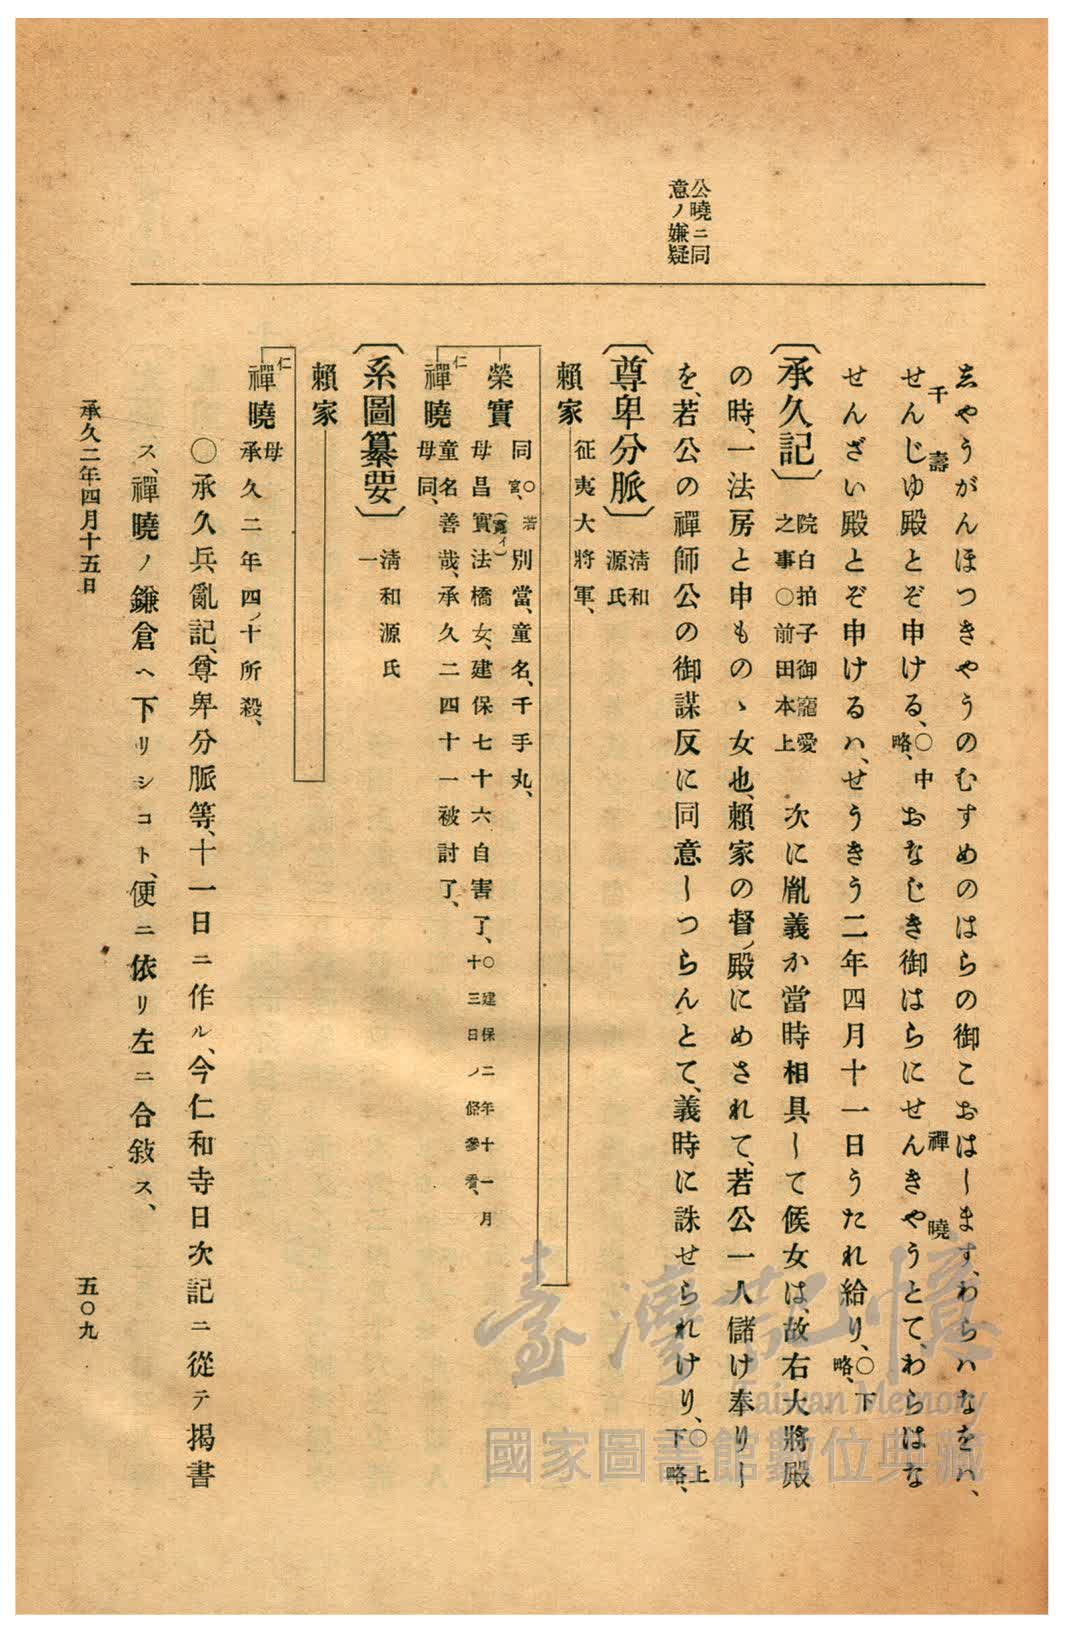 公曉ニ同
意ノ嫌疑
ゑやうがんほつきやうのむすめのはらの御こおはします、わらハなをハ、
千壽
せんじゆ殿とぞ申ける、○中略、おなじき御はらにせんきやうとて、わらはな
禪曉
せんざい殿とぞ申けるハ、せうきう二年四月十一日うたれ給り、○下略、
〔承久記〕院白拍子御寵愛之事○前田本上　次に胤義か當時相具して候女は、故右大將殿
の時、一法房と申ものゝ女也、賴家の督ノ殿にめされて、若公一人儲け奉りし
を、若公の禪師公の御謀反に同意しつらんとて、義時に誅せられけり、○上下略、
〔尊卑分脈〕清和源氏
賴家　征夷大將軍、
榮實　同○若宮、別當、童名、千手丸、
母昌實(寬イ)法橋女、建保七十六自害了、○建保二年十一月十三日ノ條參看、
仁
禪曉　童名善哉、承久二四十一被討了、
母同、
〔系圖纂要〕清和源氏一
賴家
仁
禪曉　母
承久二年四ノ十所殺、
○承久兵亂記、尊卑分脈等、十一日ニ作ル、今仁和寺日次記ニ從テ揭書
ス、禪曉ノ鎌倉ヘ下リシコト、便ニ依リ左ニ合敍ス、
承久二年四月十五日
五〇九
臺灣記憶
Taiwan Memory
國家圖書館數位典藏